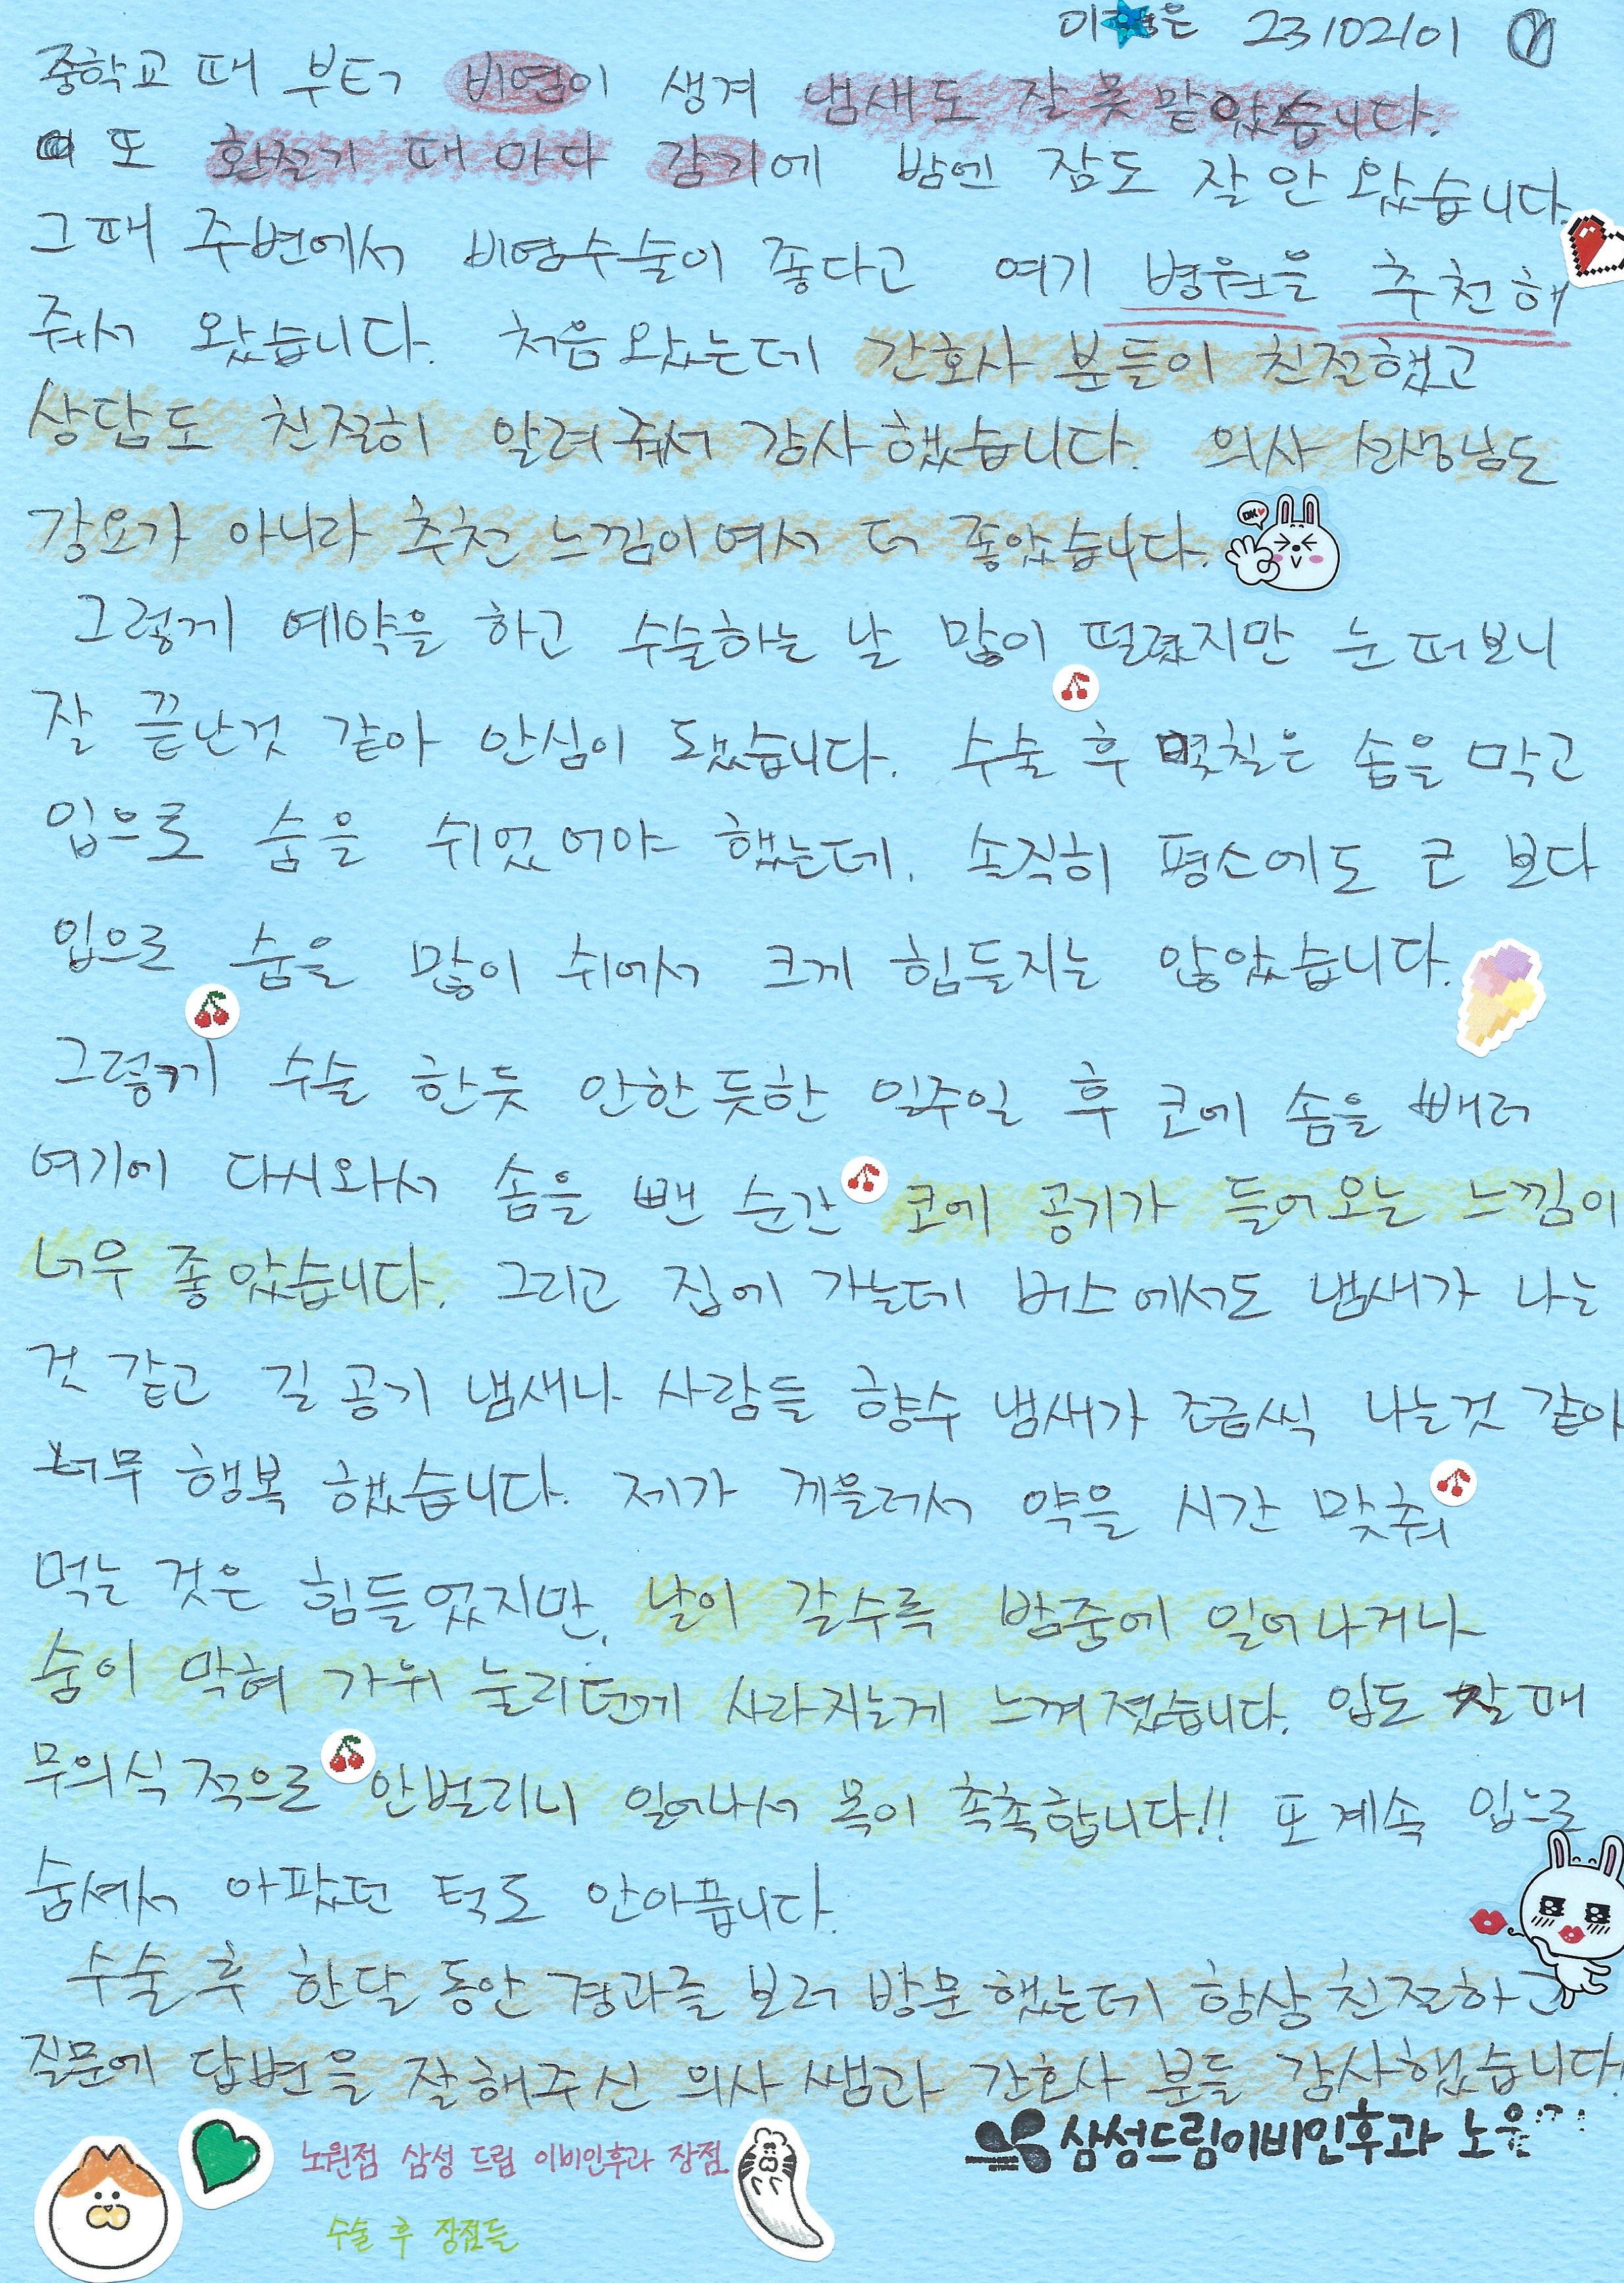 23/02/01
중학교 때 부터 비염이 생겨 냄새도 잘 못 맡았습니다.
또 환절기 때 마다 감기에 밤엔 잠도 잘 안 왔습니다.
그때 주변에서 비염수술이 좋다고 여기 병원을 추천해
줘서 왔습니다. 처음왔는데 간호사 분들이 친절했고
상담도 친절히 알려줘서 감사했습니다. 의사 선생님도
강요가 아니라 추천 느낌이여서 더 좋았습니다.
OK
그렇게 예약을 하고 수술하는 날 많이 떨렸지만 눈 떠보니
잘 끝난것 같아 안심이 됐습니다. 수술 후 몇칠은 솜을 막고
입으로 숨을 쉬었어야 했는데. 솔직히 평소에도 코 보다
입으로 숨을 많이 쉬어서 크게 힘들지는 않았습니다.
그렇게 수술 한듯 안한듯한 일주일 후 코에 솜을 빼러
여기에 다시와서 솜을 뺀 순간 코에 공기가 들어오는 느낌이
너무 좋았습니다. 그리고 집에 가는데 버스에서도 냄새가 나는
것 같고 길 공기 냄새나 사람들 향수 냄새가 조금씩 나는것 같아
너무 행복 했습니다. 제가 게을러서 약을 시간 맞춰
먹는 것은 힘들었지만, 날이 갈수록 밤중에 일어나거나
숨이 막혀 가위 눌리던게 사라지는게 느껴졌습니다. 입도 잘때
무의식적으로 안벌리니 일어나서 목이 촉촉합니다!! 또 계속 입으로
숨셔서 아팠던 턱도 안아픕니다.
수술 후 한달 동안 경과를 보러 방문했는데 항상 친절하고
질문에 답변을 잘해주신 의사 쌤과 간호사 분들 감사했습니다.
삼성드림이비인후과
노원점 삼성 드림 이비인후과 장점.
수술 후 장점들